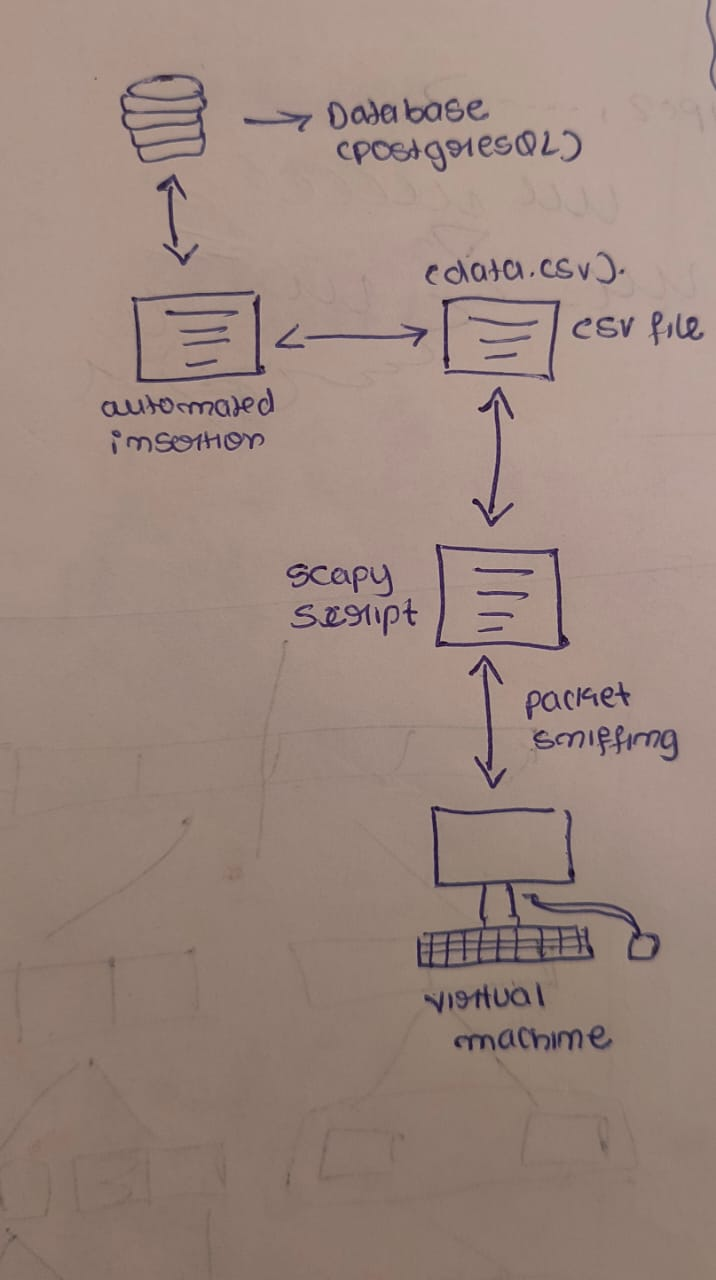 Database
(PostgresQL)
(data.csv).
csv file
automated
insertion
scapy
script
packet
sniffing
virtual
machine